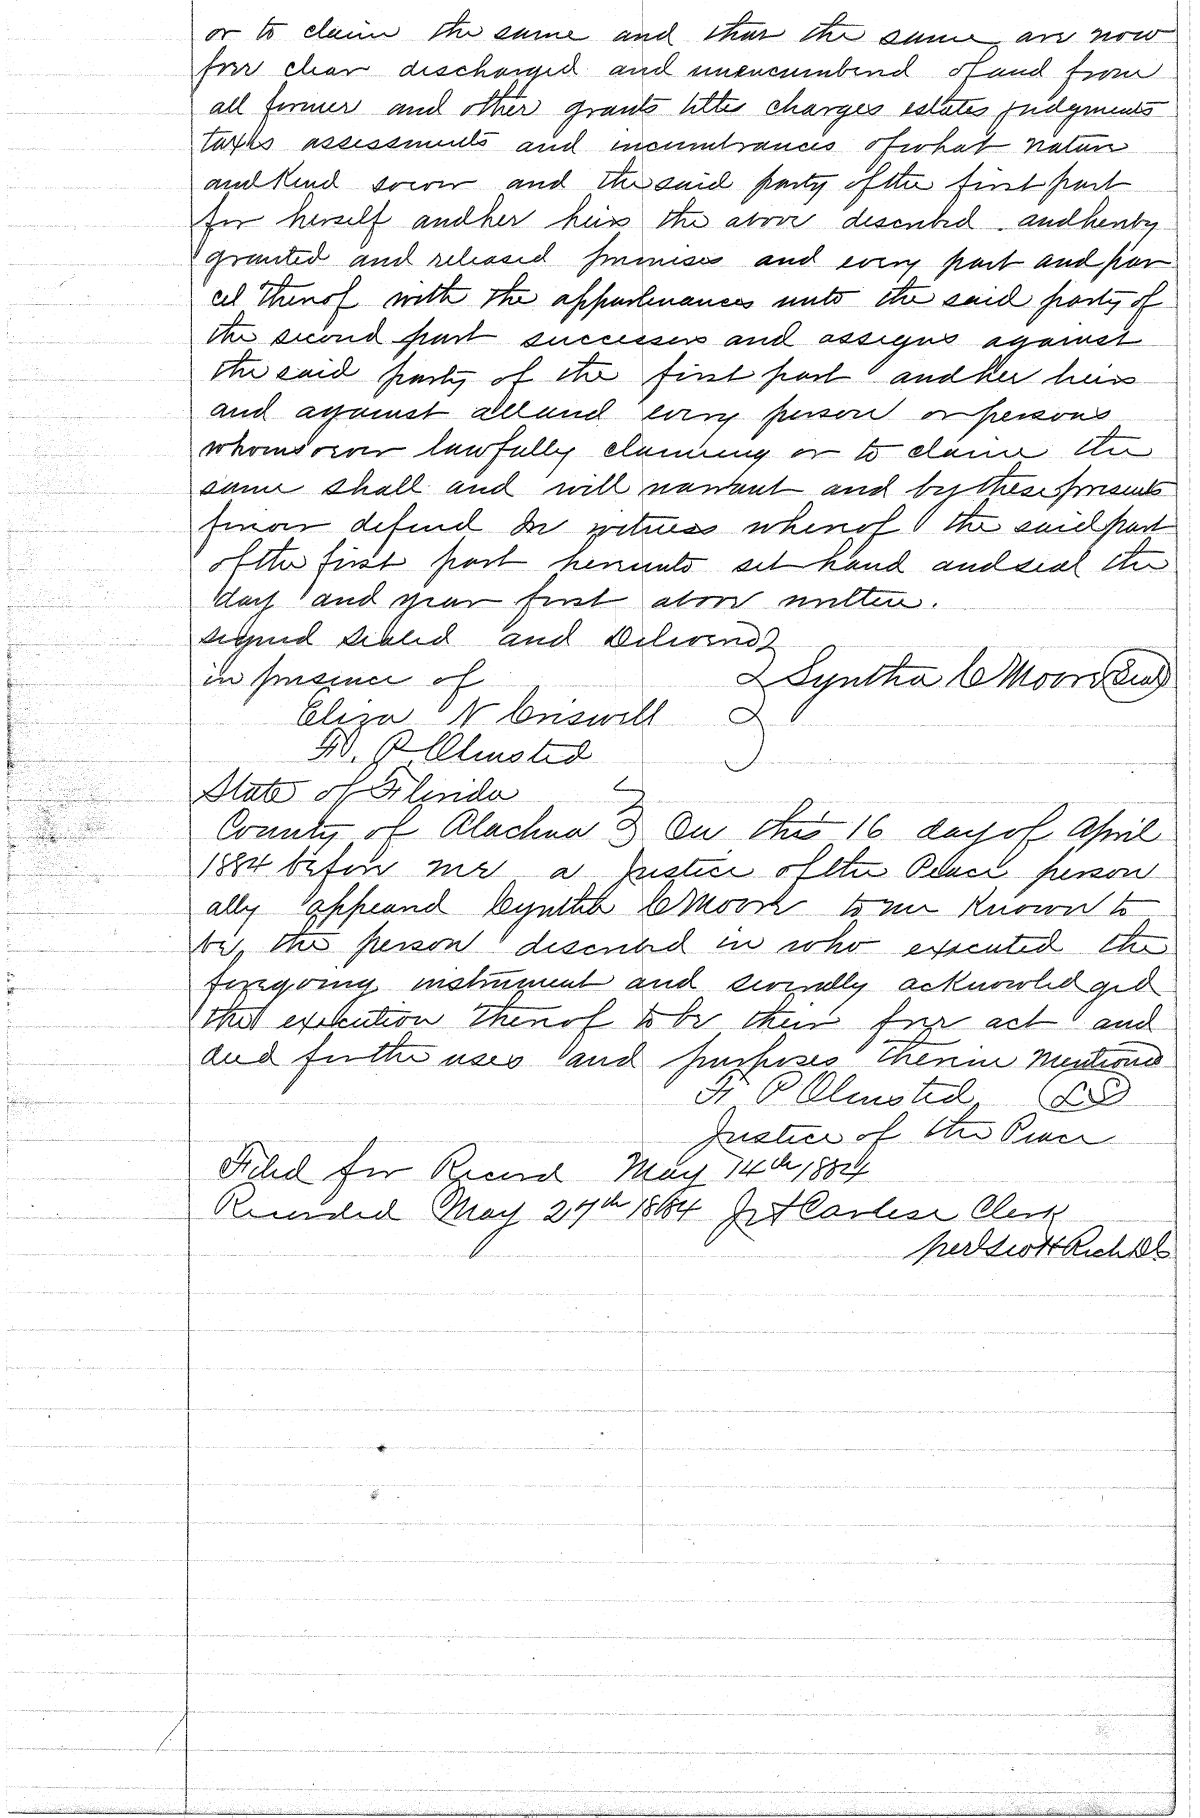 or to claim the same and that the same are now
free clear discharged and unencumbered of and from
all former and other grants title charges estates judgments
taxes assessments and incumbrances of what nature
and Kind soever and the said party of the first part
for herself and her heirs the above described and hereby
granted and released premises and every part and par
cel thereof with the appurtenances unto the said party of
the second part successors and assigns against
the said party of the first part and her heirs
and against all and every person or persons
whomsoever lawfully claiming or to claim the
same shall and will warrant and by these presents
forever defend In witness whereof the said part
of the first part hereunto set hand and seal the
day and year first above written.
signed sealed and Delivered
in presence of Syntha C Moore Seal
Eliza N Criswell
F. P. Olmsted
State of Florida
County of Alachua On this 16 day of April
1884 before me a Justice of the Peace person
ally appeared Cyntha C Moore to me Known to
be, the person described in who executed the
foregoing instrument and severally acknowledged
the execution thereof to be their free act and
deed for the uses and purposes therein Mentioned
F P Olmsted LS
Justice of the Peace
Filed for Record May 14th 1884
Recorded May 27th 1884 J A Carlisle Clerk
per Scott Rich DC